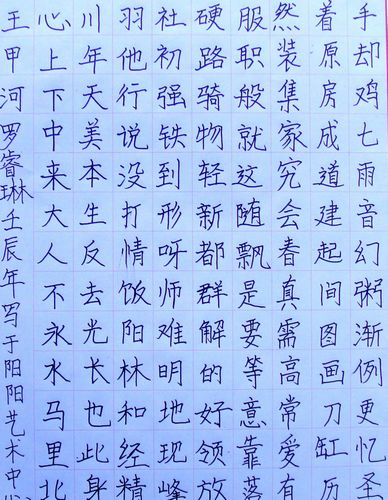 手却鸡七雨音幻粥渐例更忆圣
着原房成道建起间图画刀缸历
然装集家究会春真需高常爱有
服职般就这随飘是要等意靠落
硬路骑物轻新都群解的好领放
社初强铁到形呀师难明地现峰
羽他行说没打情饭阳林和经精
川年天美本生反去光长也此身
心上下中来大人不永水马里北
王甲河罗睿琳壬辰年写于阳阳艺术中心